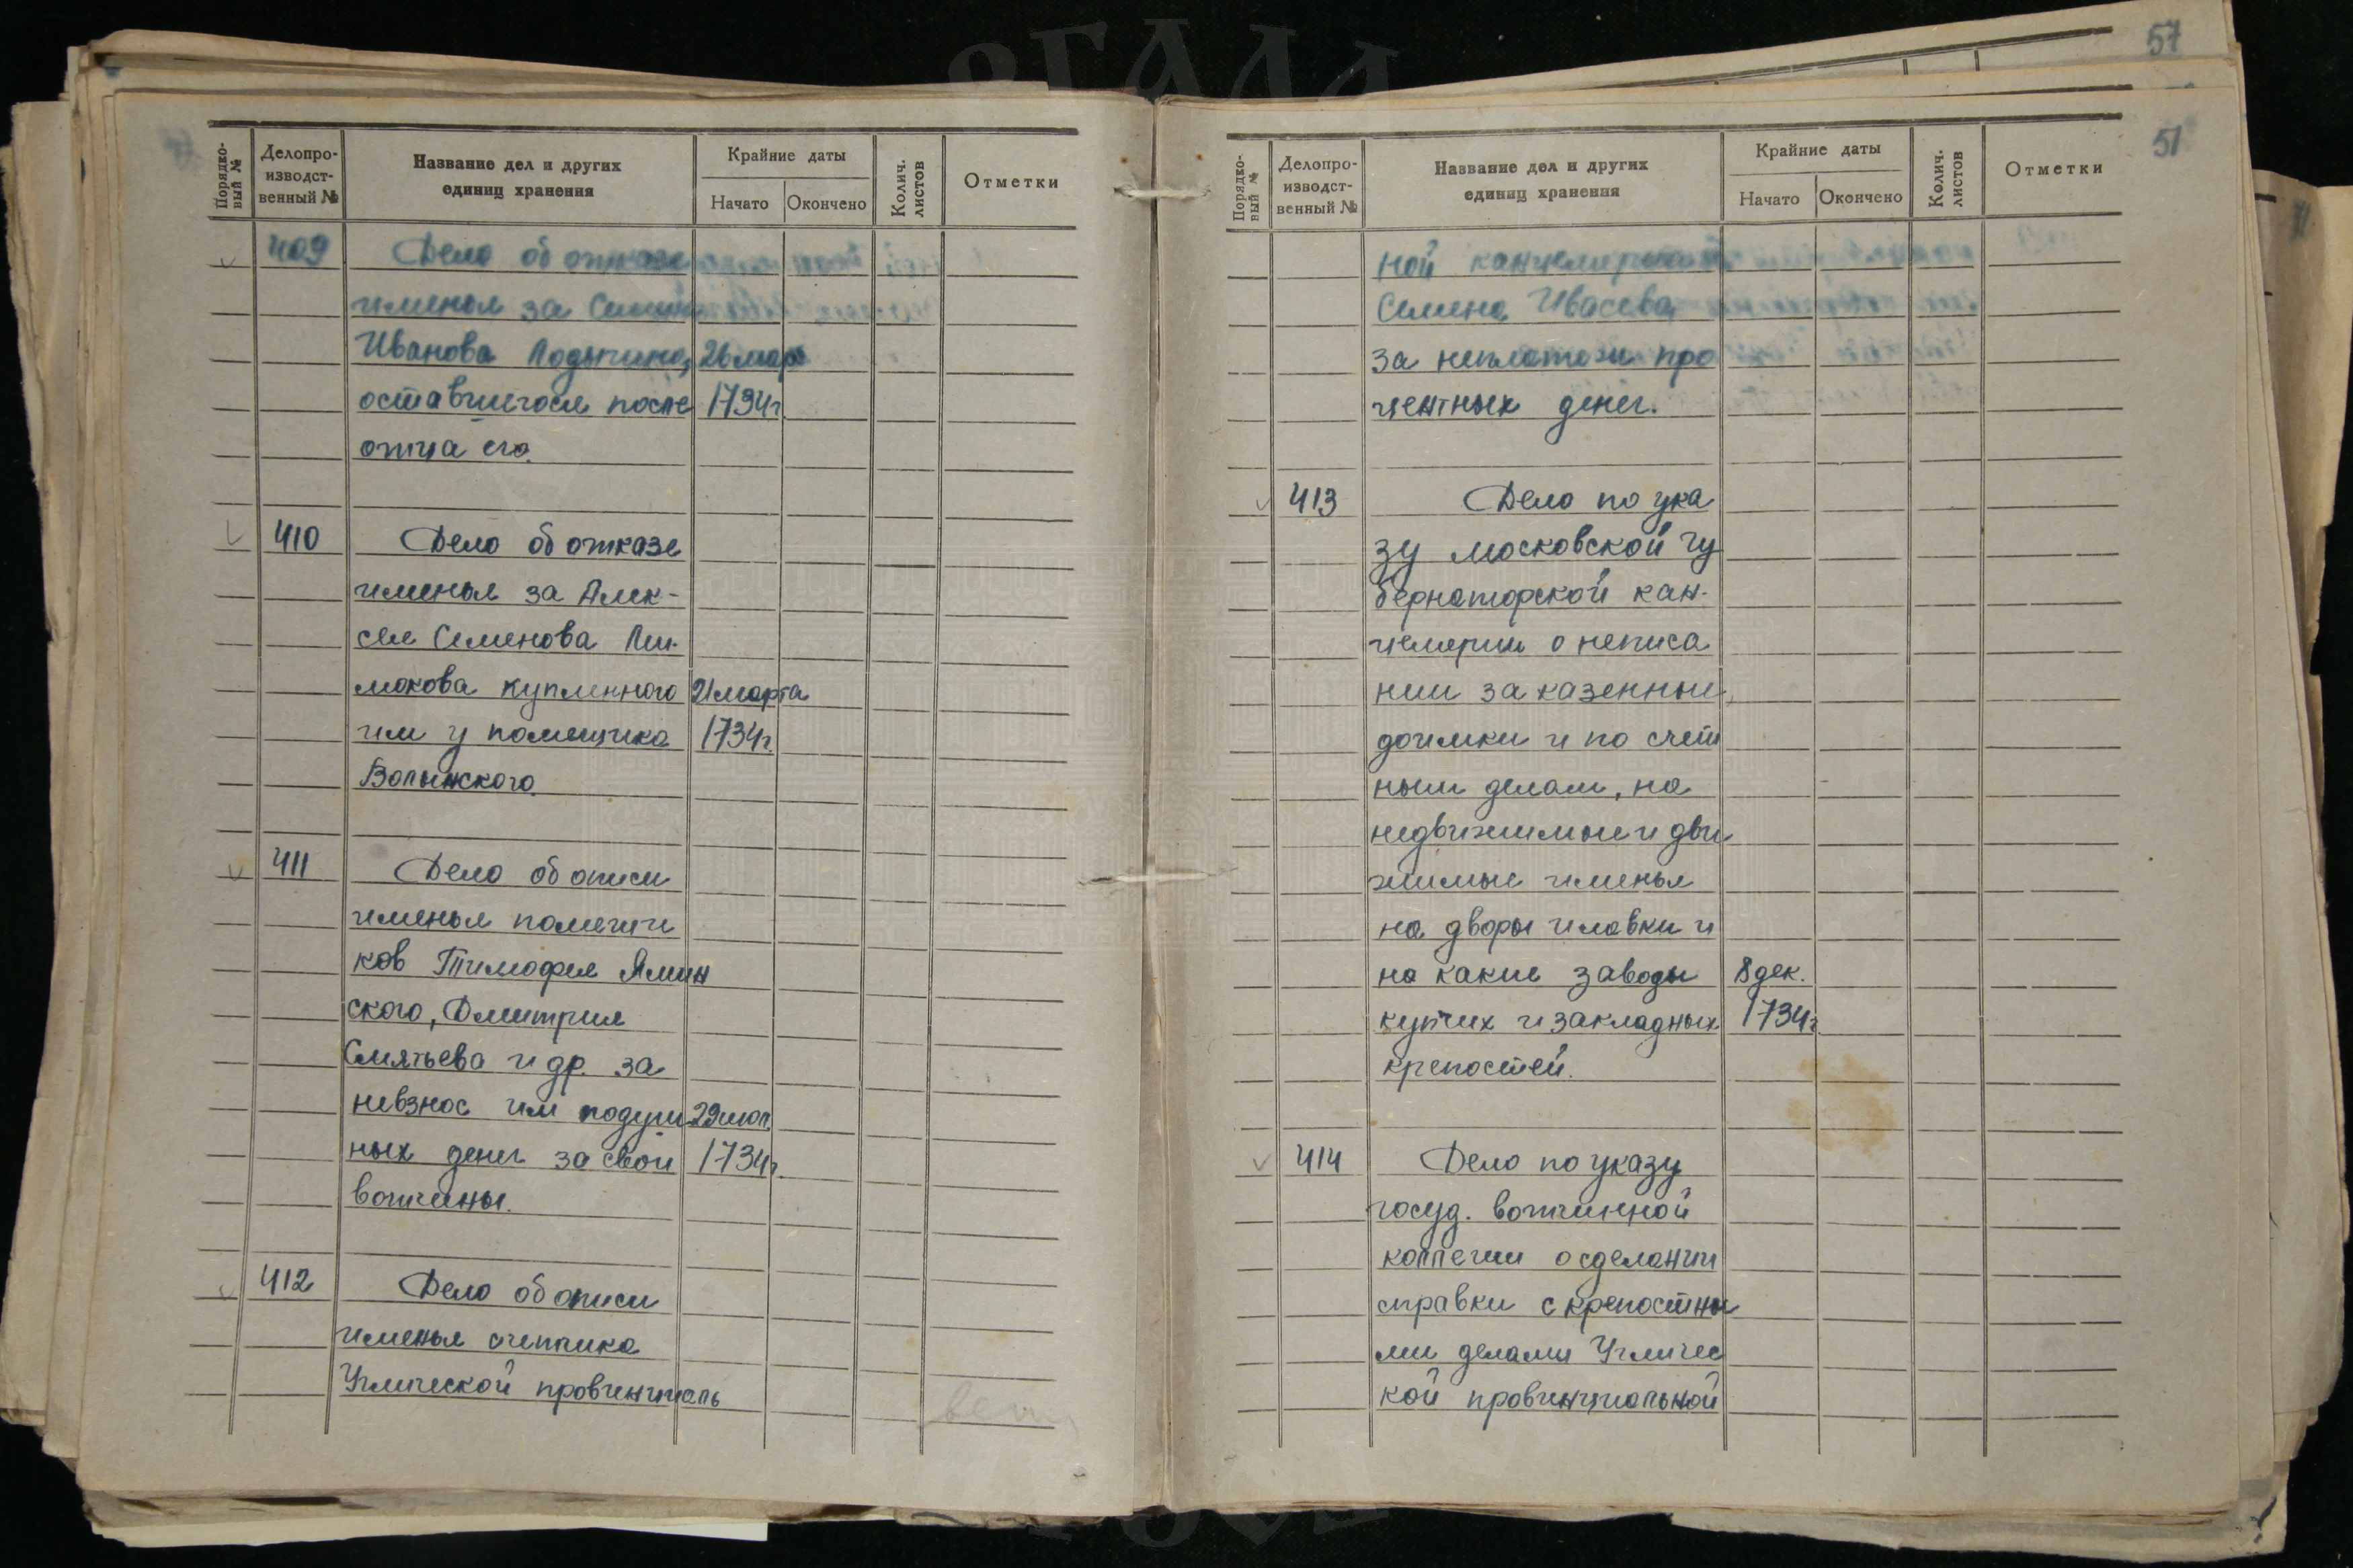 Порядко-
вый №
Делопро-
изводст-
венный №
Название дел и других
единиц хранения
Крайние даты
Начато
Окончено
Колич.
листов
Отметки
409
Дело об отказе
именья за
Иванова Лодыгина, 26 мар
оставшегося после 1734 г.
отца его.
410
Дело об отказе
именья за Алек-
сея Семенова
купленного 21 марта
им у помещика 1734 г.
Волынского.
411
Дело об описи
именья помещи
ков Тимофея Ямин
ского, Дмитрия
Смятьева и др. за
невзнос им подуш 29 июл.
ных денег за свои 1734 г.
вотчины.
412
Дело об описи
именья счетчика
Угличской провинциаль
57
51
Порядко-
вый №
Делопро-
изводст-
венный №
Название дел и других
единиц хранения
Крайние даты
Начато
Окончено
Колич.
листов
Отметки
ной
Семена Ивасева
за неплатежи про
центных денег.
413
Дело по ука
зу московской гу
бернаторской кан-
целярии о неписа
нии за казенные
доимки и по счет
ным делам, на
недвижимые и дви
жимые именья
на дворы и лавки и
на какие заводы 8 дек.
купчих и закладных 1734 г.
крепостей.
414
Дело по указу
госуд. вотчинной
коллегии о сделании
справки с крепостны
ми делами Угличес
кой провинциальной